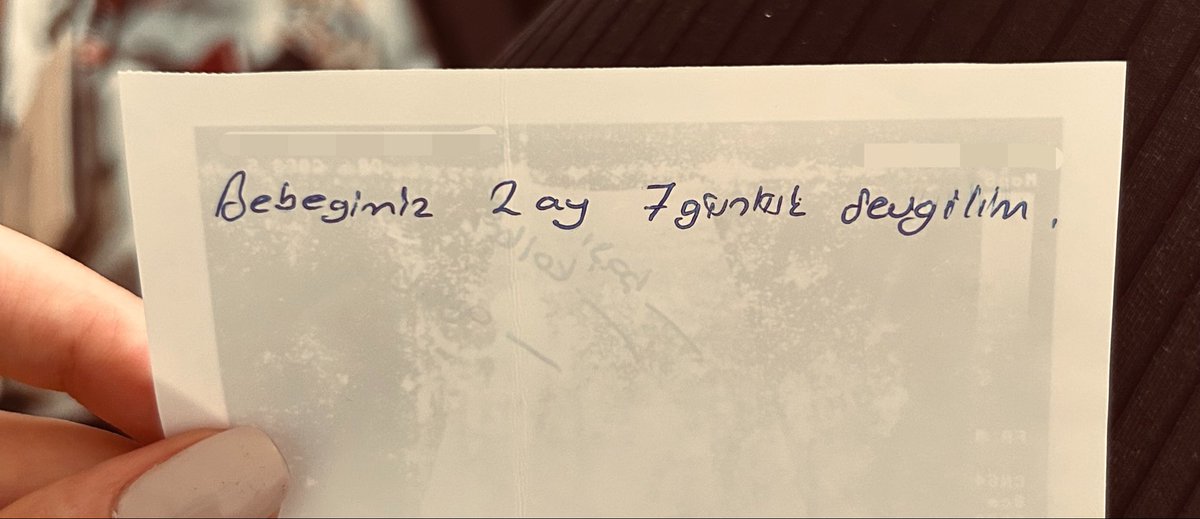 Bebegimiz 2 ay 7 günlük sevgilim.